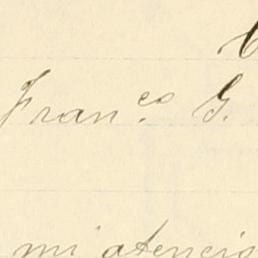 Fran.co G.
mi atencio